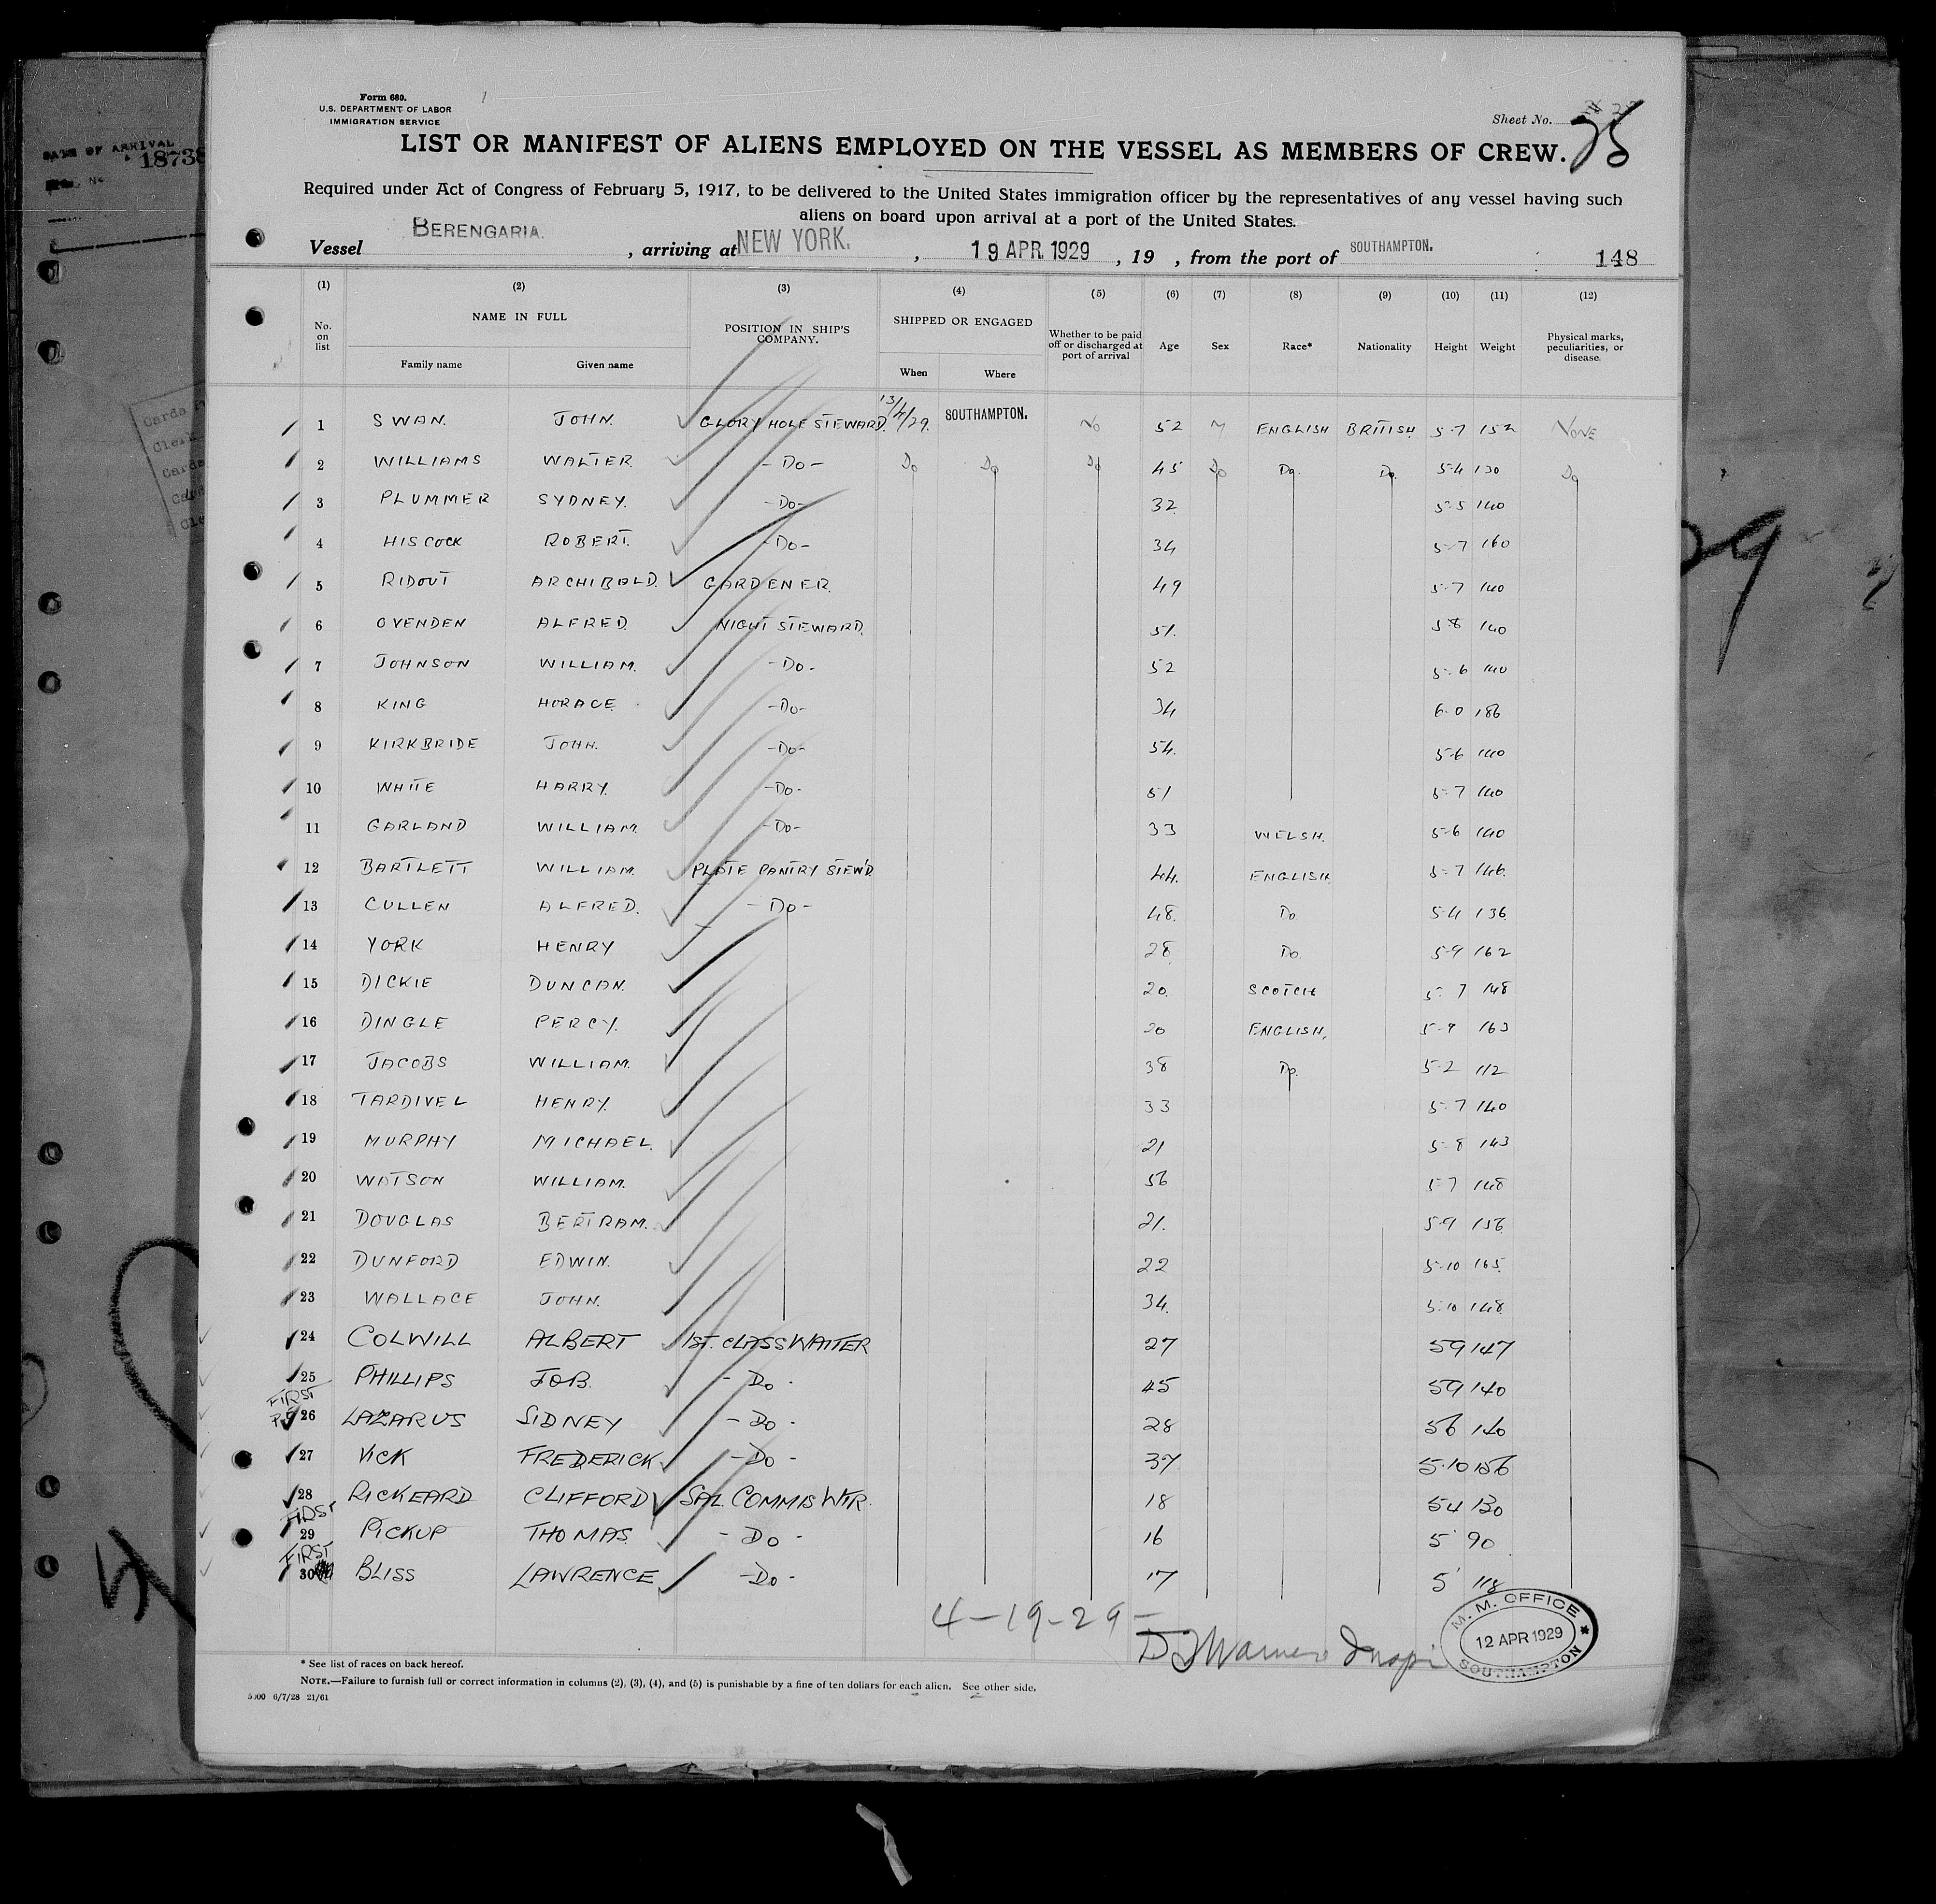 Form 680.
U.S. DEPARTMENT OF LABOR
IMMIGRATION SERVICE
Sheet No. 25
LIST OR MANIFEST OF ALIENS EMPLOYED ON THE VESSEL AS MEMBERS OF CREW.
Required under Act of Congress of February 5, 1917, to be delivered to the United States immigration officer by the representatives of any vessel having such
aliens on board upon arrival at a port of the United States.
Vessel BERENGARIA. , arriving at NEW YORK. , 19 APR. 1929 , 19 , from the port of SOUTHAMPTON. 148
(1) (2) (3) (4) (5) (6) (7) (8) (9) (10) (11) (12)
No. on list NAME IN FULL Family name Given name POSITION IN SHIP'S COMPANY. SHIPPED OR ENGAGED When Where Whether to be paid off or discharged at port of arrival Age Sex Race* Nationality Height Weight Physical marks, peculiarities, or disease.
1 SWAN. JOHN. GLORY HOLE STEWARD. 13/4/29. SOUTHAMPTON. No 52 M ENGLISH BRITISH. 5-7 152 NONE
2 WILLIAMS WALTER. -Do- Do Do Do 45 Do Do. Do. 5-4 130 Do
3 PLUMMER SYDNEY. -Do- 32 5-5 140
4 HISCOCK ROBERT. -Do- 34 5-7 160
5 RIDOUT ARCHIBALD. GARDENER. 49 5-7 140
6 OVENDEN ALFRED. NIGHT STEWARD. 51. 5-8 140
7 JOHNSON WILLIAM. -Do- 52 5-6 140
8 KING HORACE. -Do- 34 6-0 186
9 KIRKBRIDE JOHN. -Do- 54. 5-6 140
10 WHITE HARRY. -Do- 51 5-7 140
11 GARLAND WILLIAM. -Do- 33 WELSH. 5-6 140
12 BARTLETT WILLIAM. PLATE PANTRY STEW'D. 44. ENGLISH. 5-7 146.
13 CULLEN ALFRED. -Do- 48. Do 5-4 136
14 YORK HENRY 28 Do. 5-9 162
15 DICKIE DUNCAN. 20. SCOTCH 5-7 148
16 DINGLE PERCY. 20 ENGLISH. 5-9 163
17 JACOBS WILLIAM. 38 Do. 5-2 112
18 TARDIVEL HENRY. 33 5-7 140
19 MURPHY MICHAEL. 21 5-8 143
20 WATSON WILLIAM. 56 5-7 148
21 DOUGLAS BERTRAM. 21. 5-9 156
22 DUNFORD EDWIN. 22 5-10 165.
23 WALLACE JOHN. 34. 5-10 148.
24 COLWILL ALBERT 1ST. CLASS WAITER 27 59 147
25 PHILLIPS JOB. -Do- 45 59 140
FIRST
26 LAZARUS SIDNEY -Do- 28 56 140
27 VICK FREDERICK. -Do- 37 5-10 156
28 RICKEARD CLIFFORD SAL COMMIS WTR. 18 54 130
FIRST
29 PICKUP THOMAS -Do- 16 5' 90
FIRST
30 BLISS LAWRENCE -Do- 17 5' 118
4-19-29-
M. M. OFFICE
12 APR 1929
SOUTHAMPTON
* See list of races on back hereof.
NOTE.—Failure to furnish full or correct information in columns (2), (3), (4), and (5) is punishable by a fine of ten dollars for each alien. See other side.
6/7/28 21/61